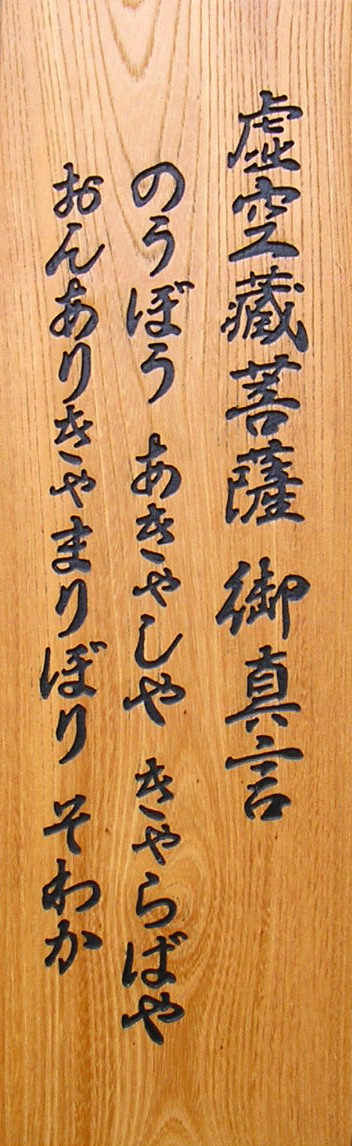 虚空藏菩薩 御真言
のうぼう あきやしや きやらばや
おんありきやまりぼり そわか